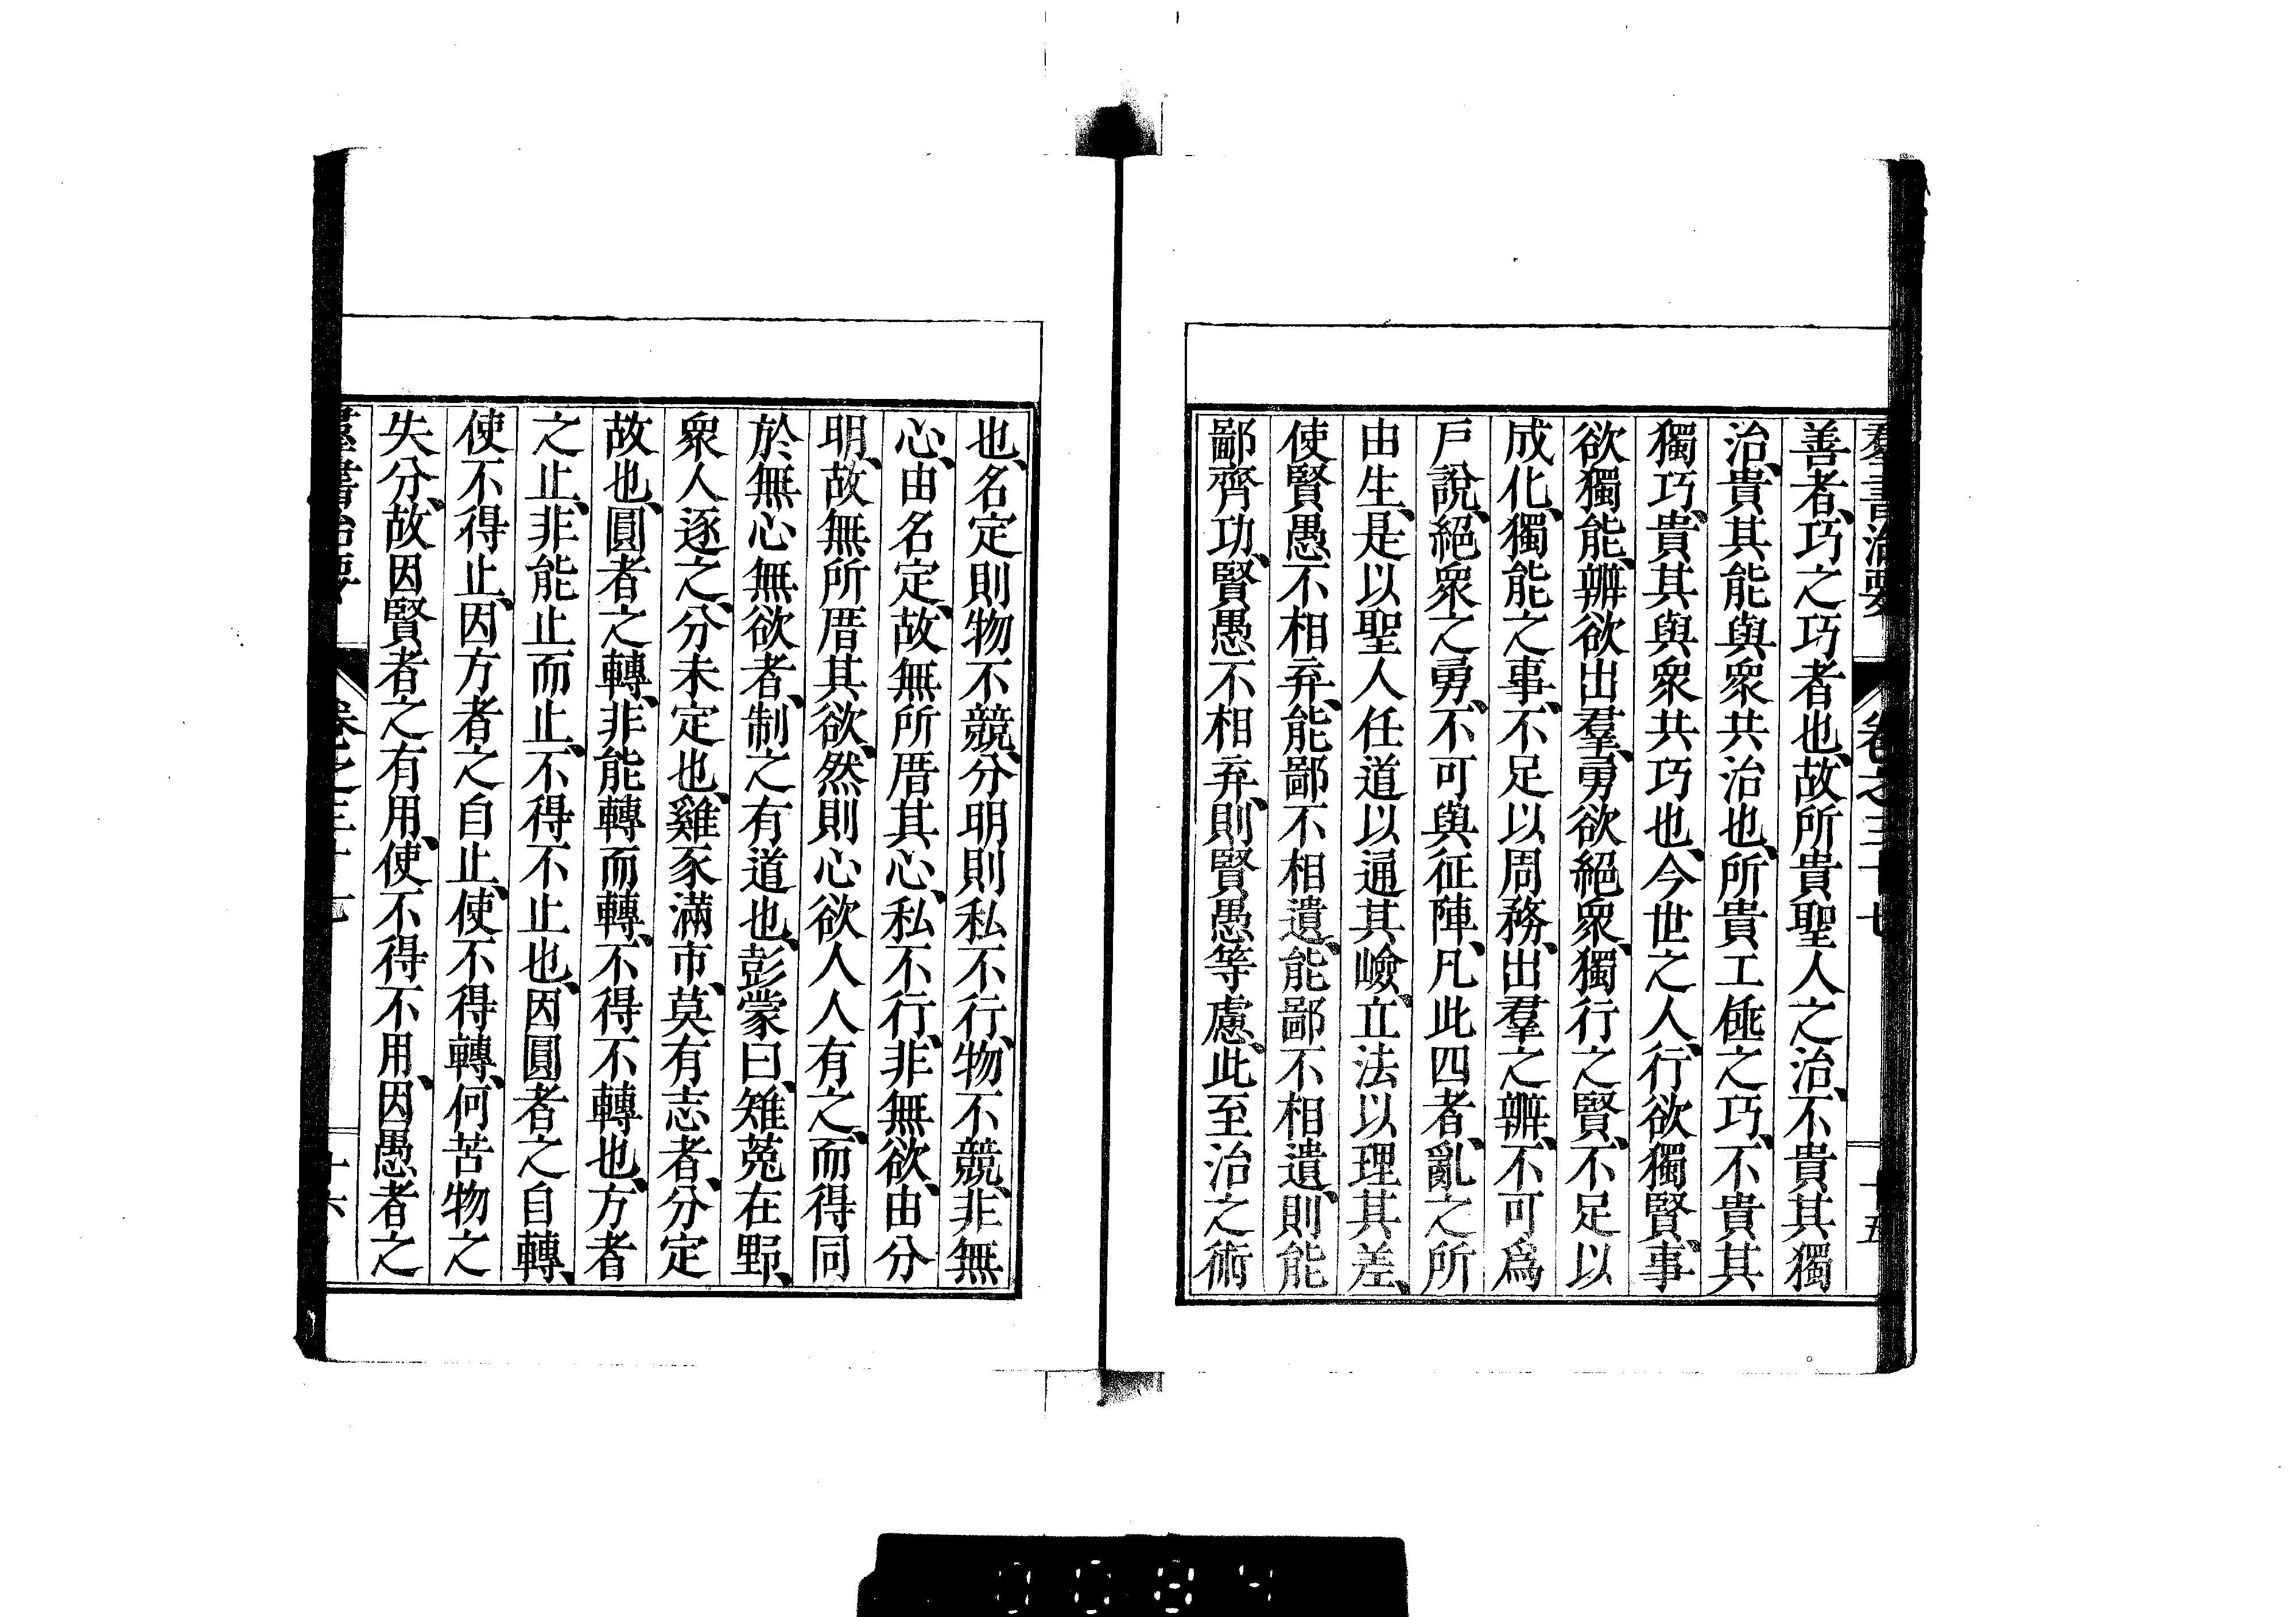 羣書治要 卷之三十七 十五
善者、巧之巧者也、故所貴聖人之治、不貴其獨
治、貴其能與衆共治也、所貴工倕之巧、不貴其
獨巧、貴其與衆共巧也、今世之人、行欲獨賢、事
欲獨能、辨欲出羣、勇欲絕衆、獨行之賢、不足以
成化、獨能之事、不足以周務、出羣之辨、不可爲
戶說、絕衆之勇、不可與征陣、凡此四者、亂之所
由生、是以聖人任道以通其嶮、立法以理其差、
使賢愚不相弃、能鄙不相遺、能鄙不相遺、則能
鄙齊功、賢愚不相弃、則賢愚等慮、此至治之術
也、名定則物不競、分明則私不行、物不競、非無
心、由名定、故無所厝其心、私不行、非無欲、由分
明、故無所厝其欲、然則心欲人人有之、而得同
於無心無欲者、制之有道也、彭蒙曰、雉菟在野、
衆人逐之、分未定也、雞豕滿市、莫有志者、分定
故也、圓者之轉、非能轉而轉、不得不轉也、方者
之止、非能止而止、不得不止也、因圓者之自轉、
使不得止、因方者之自止、使不得轉、何苦物之
失分、故因賢者之有用、使不得不用、因愚者之
羣書治要 卷之三十七 十六
0084